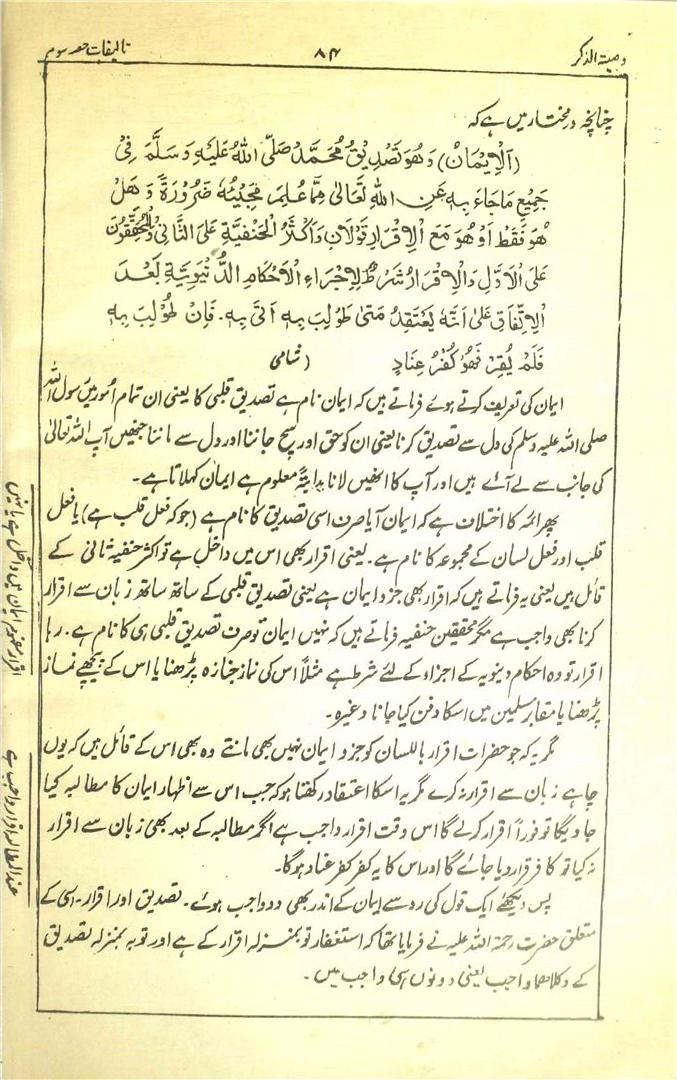 وصیۃ الذکر
۸۴
تالیفات حصہ سوم
چنانچہ درمختار میں ہے کہ
(اَلْاِیْمَانُ) وَهُوَ تَصْدِیْقُ مُحَمَّدٍ صَلَّی اللهُ عَلَیْهِ وَسَلَّمَ فِیْ
جَمِیْعِ مَا جَاءَ بِهٖ عَنِ اللهِ تَعَالٰی مِمَّا عُلِمَ مَجِیْئُهٗ ضَرُوْرَةً وَهَلْ
هُوَ فَقَطْ اَوْ هُوَ مَعَ الْاِقْرَارِ قَوْلَانِ وَاَکْثَرُ الْحَنَفِیَّةِ عَلَی الثَّانِیْ وَالْمُحَقِّقُوْنَ
عَلَی الْاَوَّلِ وَالْاِقْرَارُ شَرْطٌ لِاِجْرَاءِ الْاَحْکَامِ الدُّنْیَوِیَّةِ بَعْدَ
الْاِتِّفَاقِ عَلٰی اَنَّهٗ یَعْتَقِدُ مَتٰی طُوْلِبَ بِهٖ اَتٰی بِهٖ۔ فَاِنْ طُوْلِبَ بِهٖ
فَلَمْ یُقِرَّ فَهُوَ کُفْرُ عِنَادٍ (شامی
ایمان کی تعریف کرتے ہوئے فرماتے ہیں کہ ایمان نام ہے تصدیق قلبی کا یعنی ان تمام امور میں رسول اللہ
صلی اللہ علیہ وسلم کی دل سے تصدیق کرنا یعنی ان کو حق اور سچ جاننا اور دل سے ماننا جنھیں آپ اللہ تعالیٰ
کی جانب سے لے آئے ہیں اور آپ کا انھیں لانا بداہۃً معلوم ہے ایمان کہلاتا ہے۔
پھر ائمہ کا اختلاف ہے کہ ایمان آیا صرف اسی تصدیق کا نام ہے (جو کہ فعل قلب ہے) یا فعل
قلب اور فعل لسان کے مجموعہ کا نام ہے۔ یعنی اقرار بھی اس میں داخل ہے تو اکثر حنفیہ ثانی کے
قائل ہیں یعنی یہ فرماتے ہیں کہ اقرار بھی جزو ایمان ہے یعنی تصدیق قلبی کے ساتھ ساتھ زبان سے اقرار
کرنا بھی واجب ہے مگر محققین حنفیہ فرماتے ہیں کہ نہیں ایمان تو صرف تصدیق قلبی ہی کا نام ہے۔ رہا
اقرار تو وہ احکام دینویہ کے اجراء کے لئے شرط ہے مثلاً اس کی نماز جنازہ پڑھنا یا اس کے پیچھے نماز
پڑھنا یا مقابر مسلمین میں اسکا دفن کیا جانا وغیرہ۔
مگر یہ کہ جو حضرات اقرار باللسان کو جزو ایمان نہیں بھی مانتے وہ بھی اس کے قائل ہیں کہ یوں
چاہے زبان سے اقرار نہ کرے مگر یہ اسکا اعتقاد رکھتا ہو کہ جب اس سے اظہار ایمان کا مطالبہ کیا
جاویگا تو فوراً اقرار کرلے گا اس وقت اقرار واجب ہے اگر مطالبہ کے بعد بھی زبان سے اقرار
نہ کیا تو کافر قرار دیا جائے گا اور اس کا یہ کفر کفر عناد ہوگا۔
پس دیکھئے ایک قول کی رو سے ایمان کے اندر بھی دو واجب ہوئے۔ تصدیق اور اقرار۔ اسی کے
متعلق حضرت رحمۃ اللہ علیہ نے فرمایا تھا کہ استغفار تو بمنزلہ اقرار کے ہے اور توبہ بمنزلہ تصدیق
کے وکلاھما واجب یعنی دونوں ہی واجب ہیں۔
اقرار مفہوم ایمان میں داخل ہے یا نہیں
عند المطالبہ اقرار واجب ہے